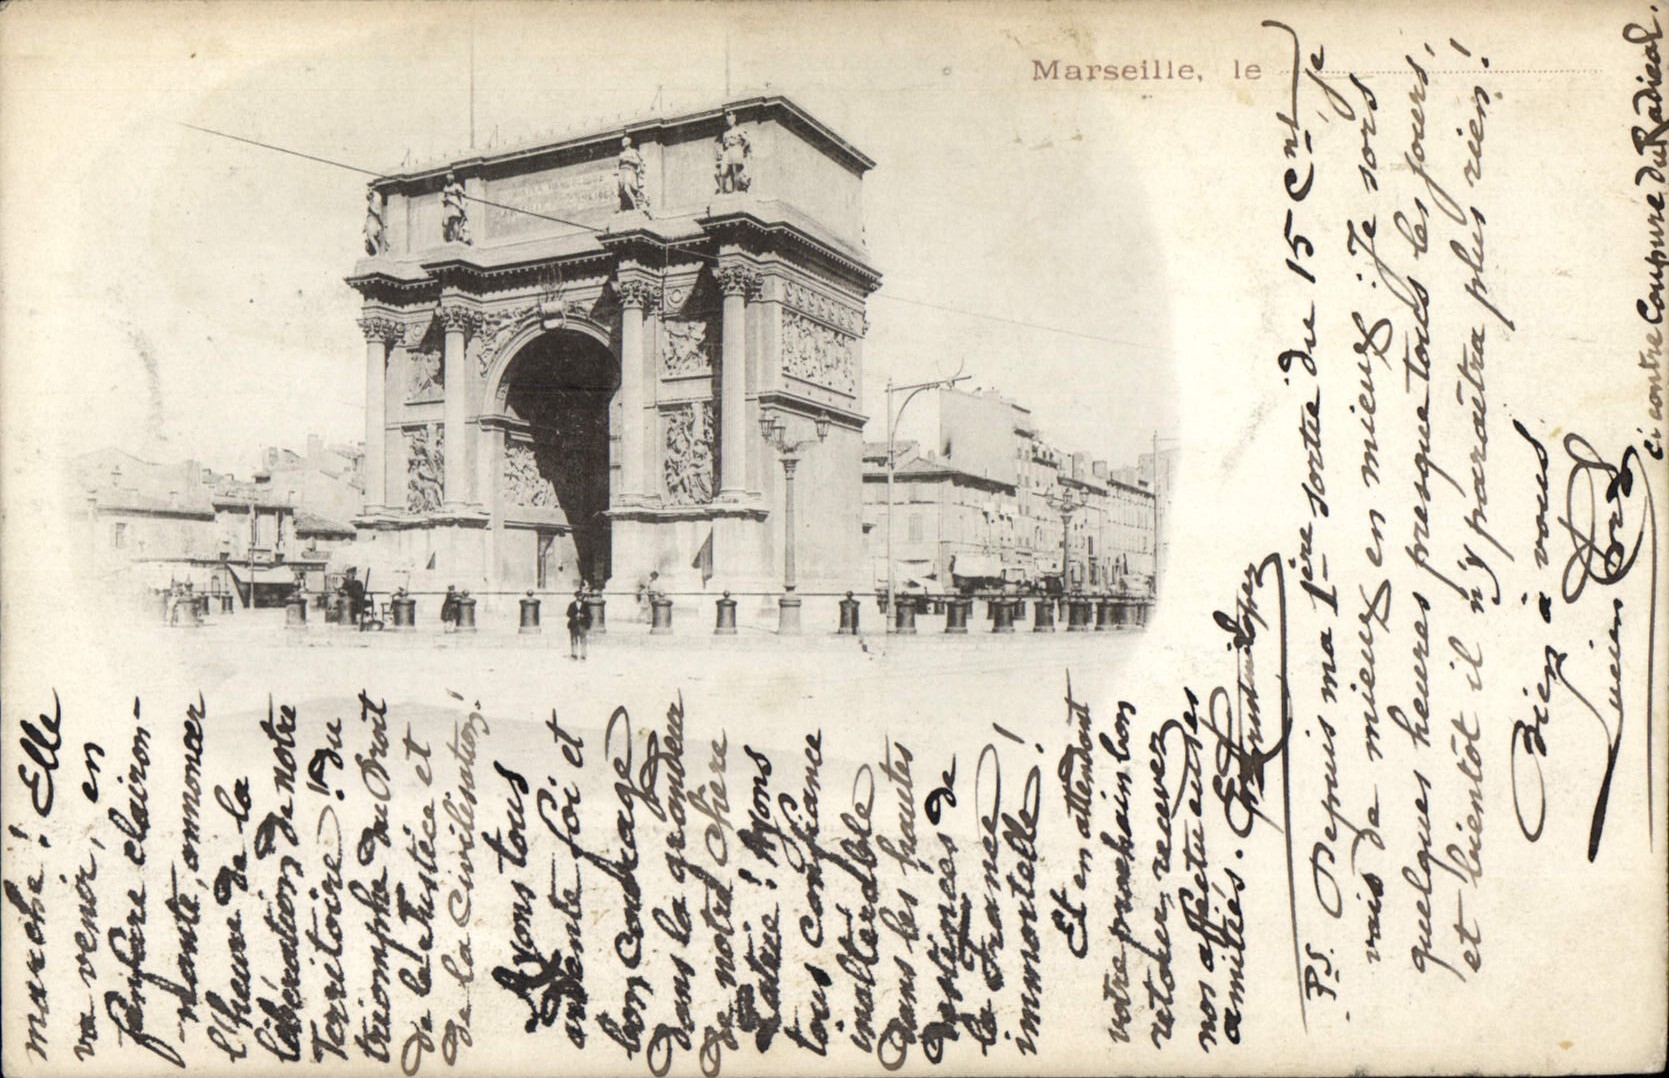 Marseille, le
marche! Elle
va venir, en
fanfare clairon-
-nante, annoncer
l'heure de la
libération de notre
Territoire! du
triomphe du Droit
de la Justice et
de la Civilisation!
Ayons tous
ardente foi et
bon courage
dans la grandeur
de notre chère
Patrie! Ayons
tous confiance
inaltérable
dans les hautes
destinées de
la France
immortelle!
Et en attendant
votre prochain bon
retour, recevez
nos affectueuses
amitiés.
P.S. Depuis ma 1ère sortie du 15 Cnt je
vais de mieux en mieux; Je sors
quelques heures presque tous les jours,
et bientôt il n'y paraîtra plus rien!
Bien à vous
Lucien
ci contre Coupure du Radical.